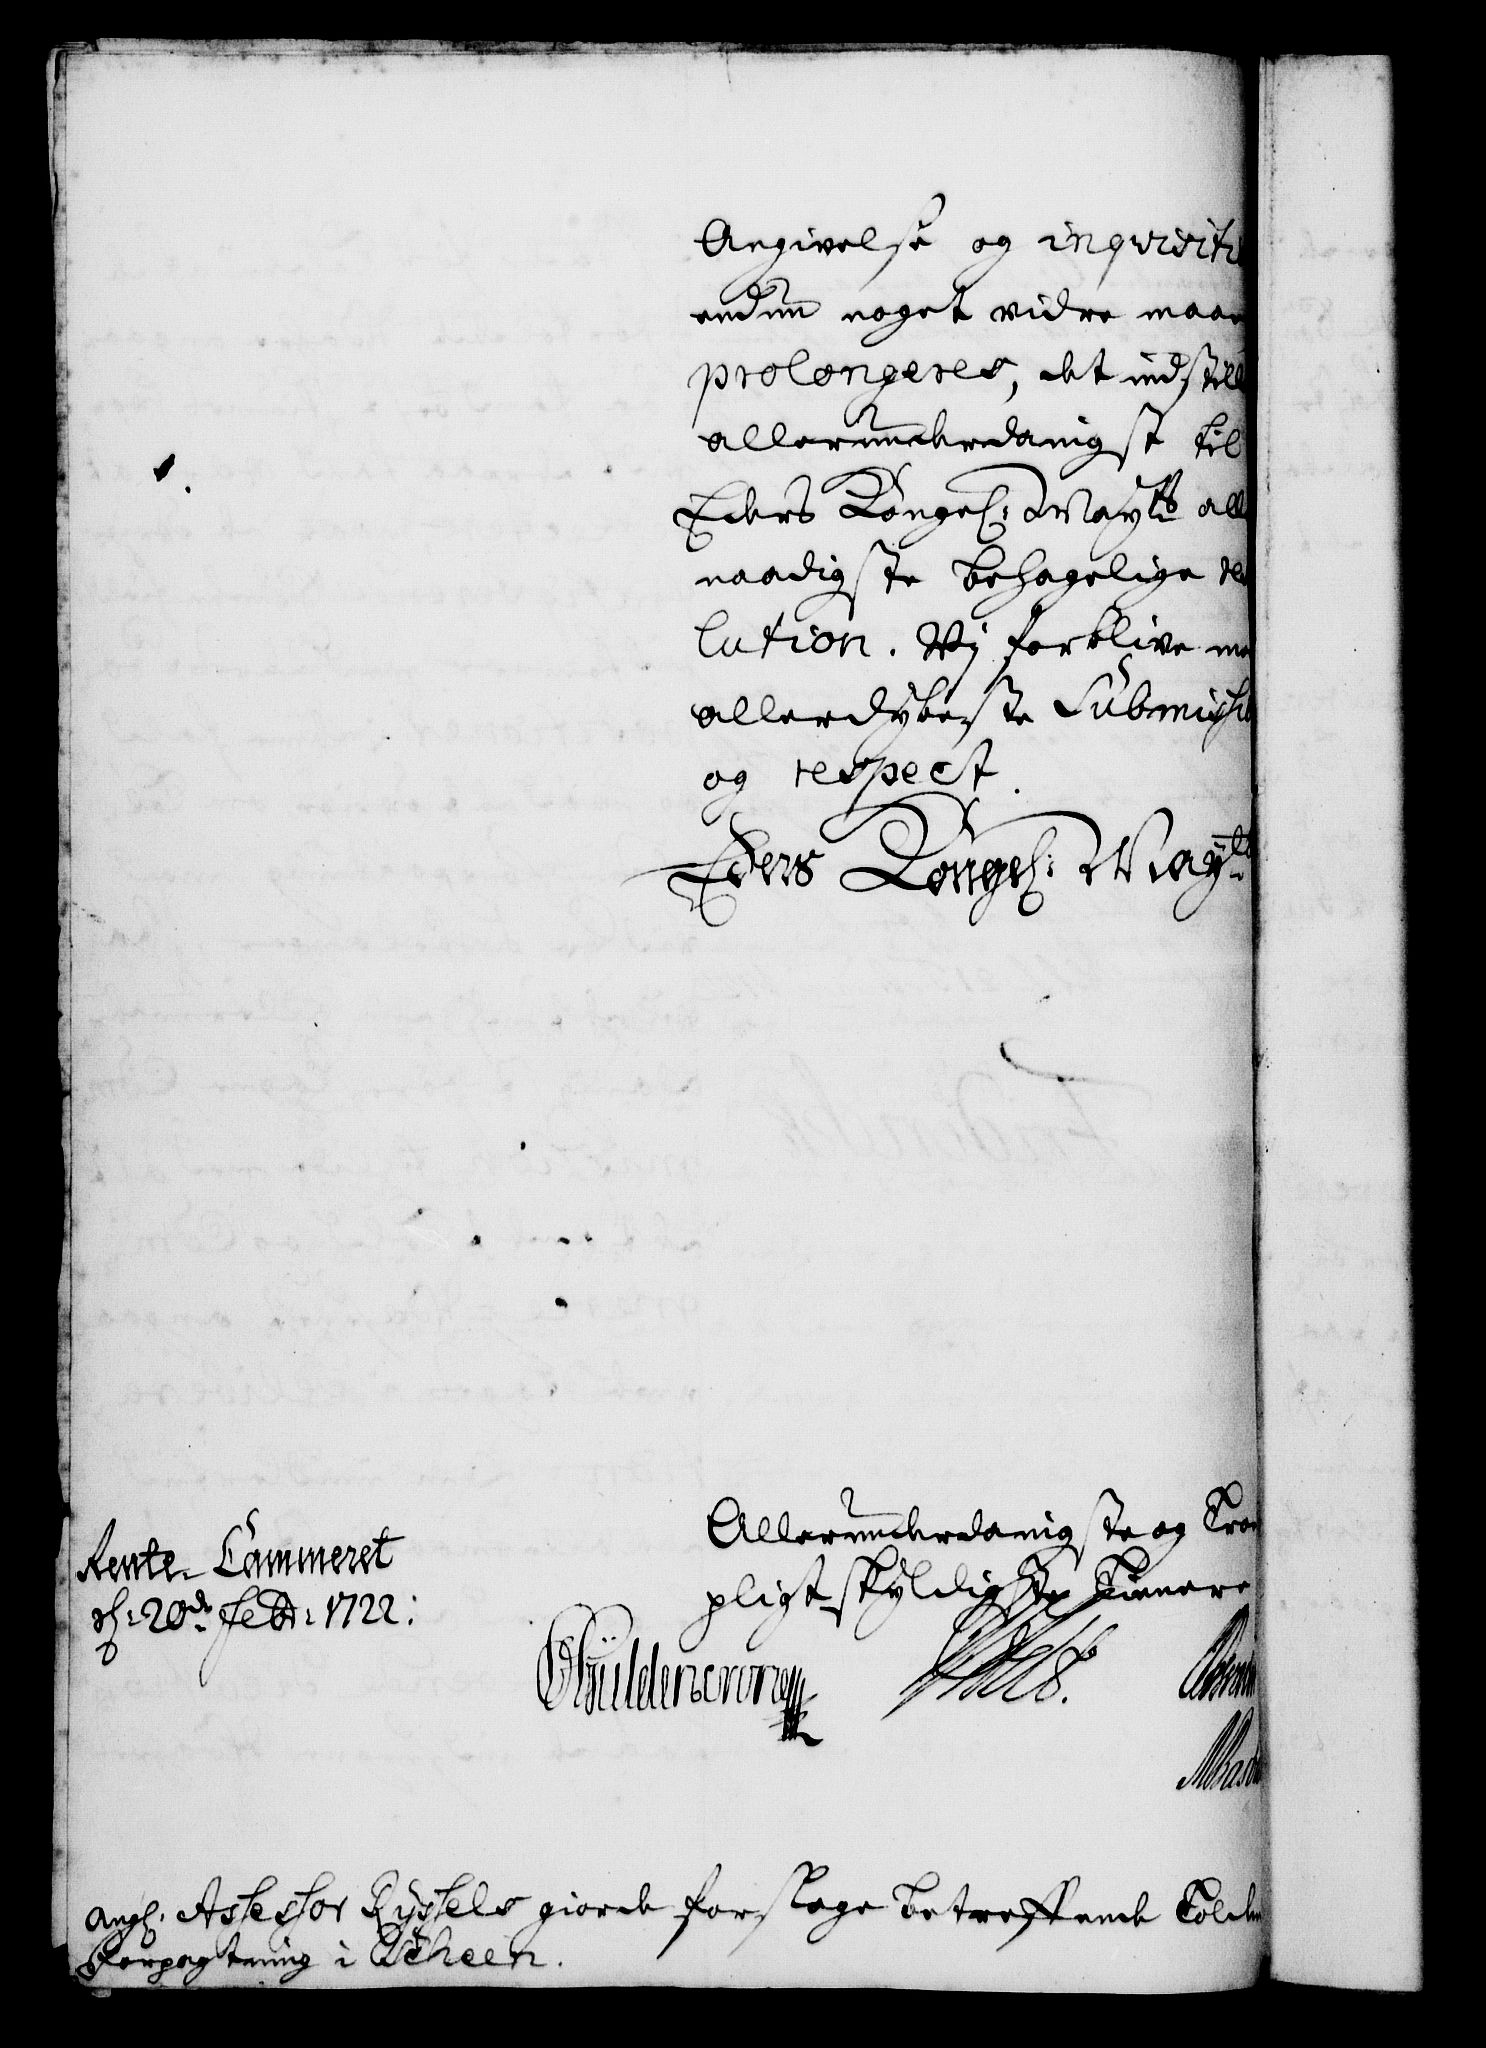 Angivelse og inqvisiti
endnu noget vidre maa
prolongeres, det indstill
allerunderdanigst til
Eders Kongel: Mayts all
naadigste behagelige re
lution. Vij forblive me
allerdybeste Submissi
og respect.
Eders Kongel: Mayts
Allerunderdanigste og Tro
pligtskyldigste Tienere
Rente-Cammeret
d: 20de Febr: 1722.
Gyldencrone
angl. Assessor Ryssels giorde forslage betreffende Tolde
Forpagtning i Scheen.